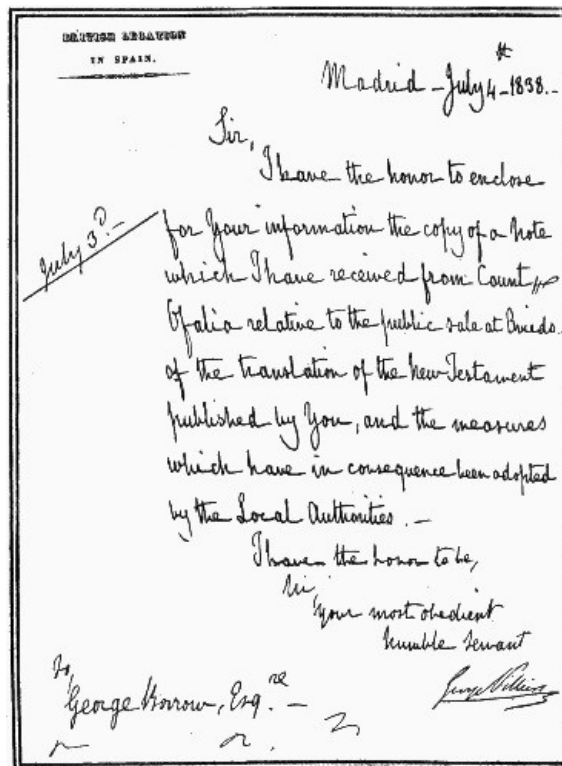 BRITISH LEGATION
IN SPAIN.
Madrid - July 4th - 1838. -
Sir,
I have the honor to enclose
July 3d. -
for Your information the copy of a Note
which I have received from Count
Ofalia relative to the public sale at Oviedo
of the translation of the New Testament
published by You, and the measures
which have in consequence been adopted
by the Local Authorities. -
I have the honor to be,
Sir,
your most obedient
humble servant
George Villiers
To,
George Borrow, Esqre. -